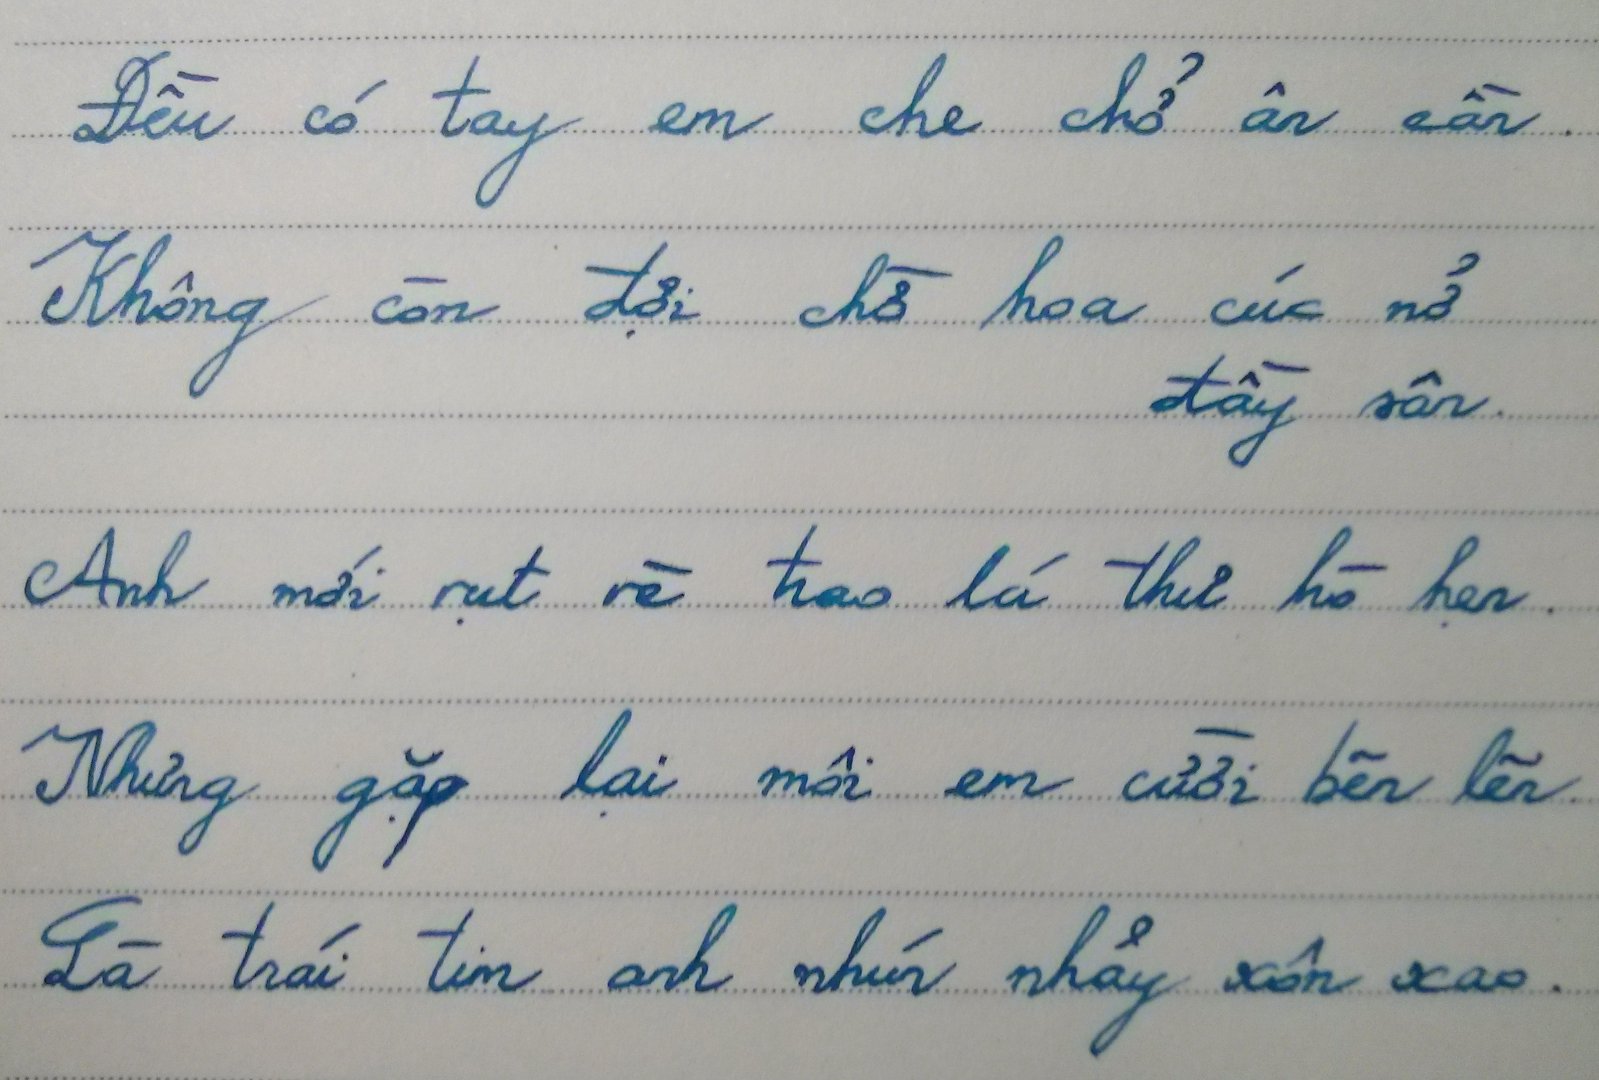 Đều có tay em che chở ân cần.
Không còn đợi chờ hoa cúc nở
đầy sân.
Anh mới rụt rè trao lá thư hò hẹn.
Nhưng gặp lại môi em cười bẽn lẽn
Là trái tim anh nhún nhảy xôn xao.